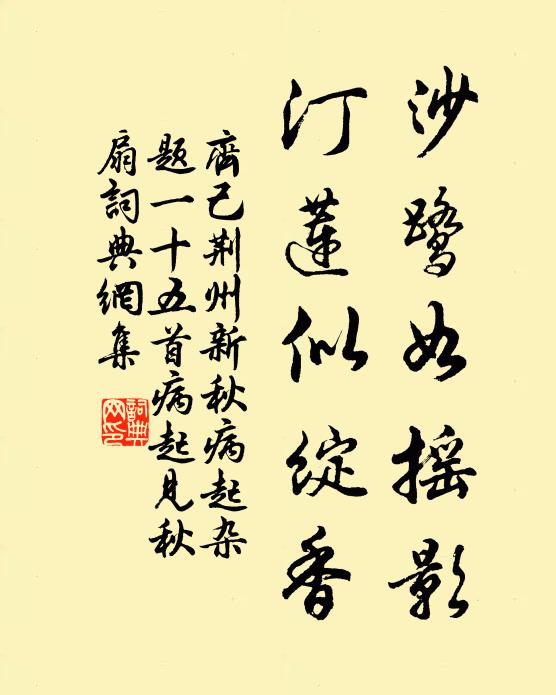 沙鹭如摇影
汀莲似绽香
齊己荆州新秋病起杂
题一十五首病起见秋
扇詞典網集
詞典網印